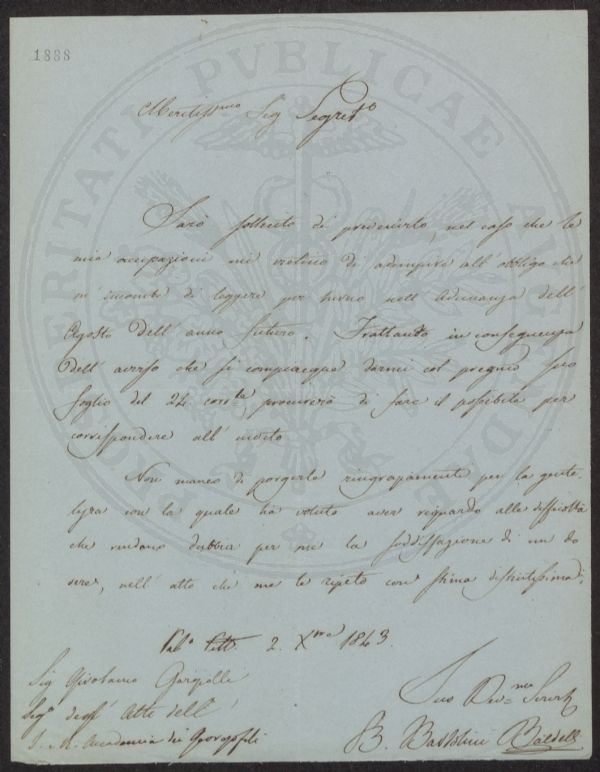 1888
PROSPERITATI PVBLICAE AVGENDAE
Meritissimo Sig Segret.o
Sarò sollecito di prevenirlo, nel caso che le
mie occupazioni mi vietino di adempire all' obbligo che
m' incombe di leggere per turno nell' Adunanza dell'
Agosto dell' anno futuro. Trattanto in conseguenza
dell' avviso che si compiacque darmi col pregiato suo
foglio del 24 corr.te, procurerò di fare il possibile per
corrispondere all' invito
Non manco di porgerle ringraziamenti per la genti
lezza con la quale ha voluto aver riguardo alle difficoltà
che rendono dubbia per me la soddisfazione di un do
vere, nell' atto che me le ripeto con stima distintissima.
2. Xbre 1843.
Sig Girolamo Gargiolli
Seg.o degl' Atti dell'
I. R. Accademia dei Georgofili
Suo Dev.mo Serv.
B. Bartolini Baldelli